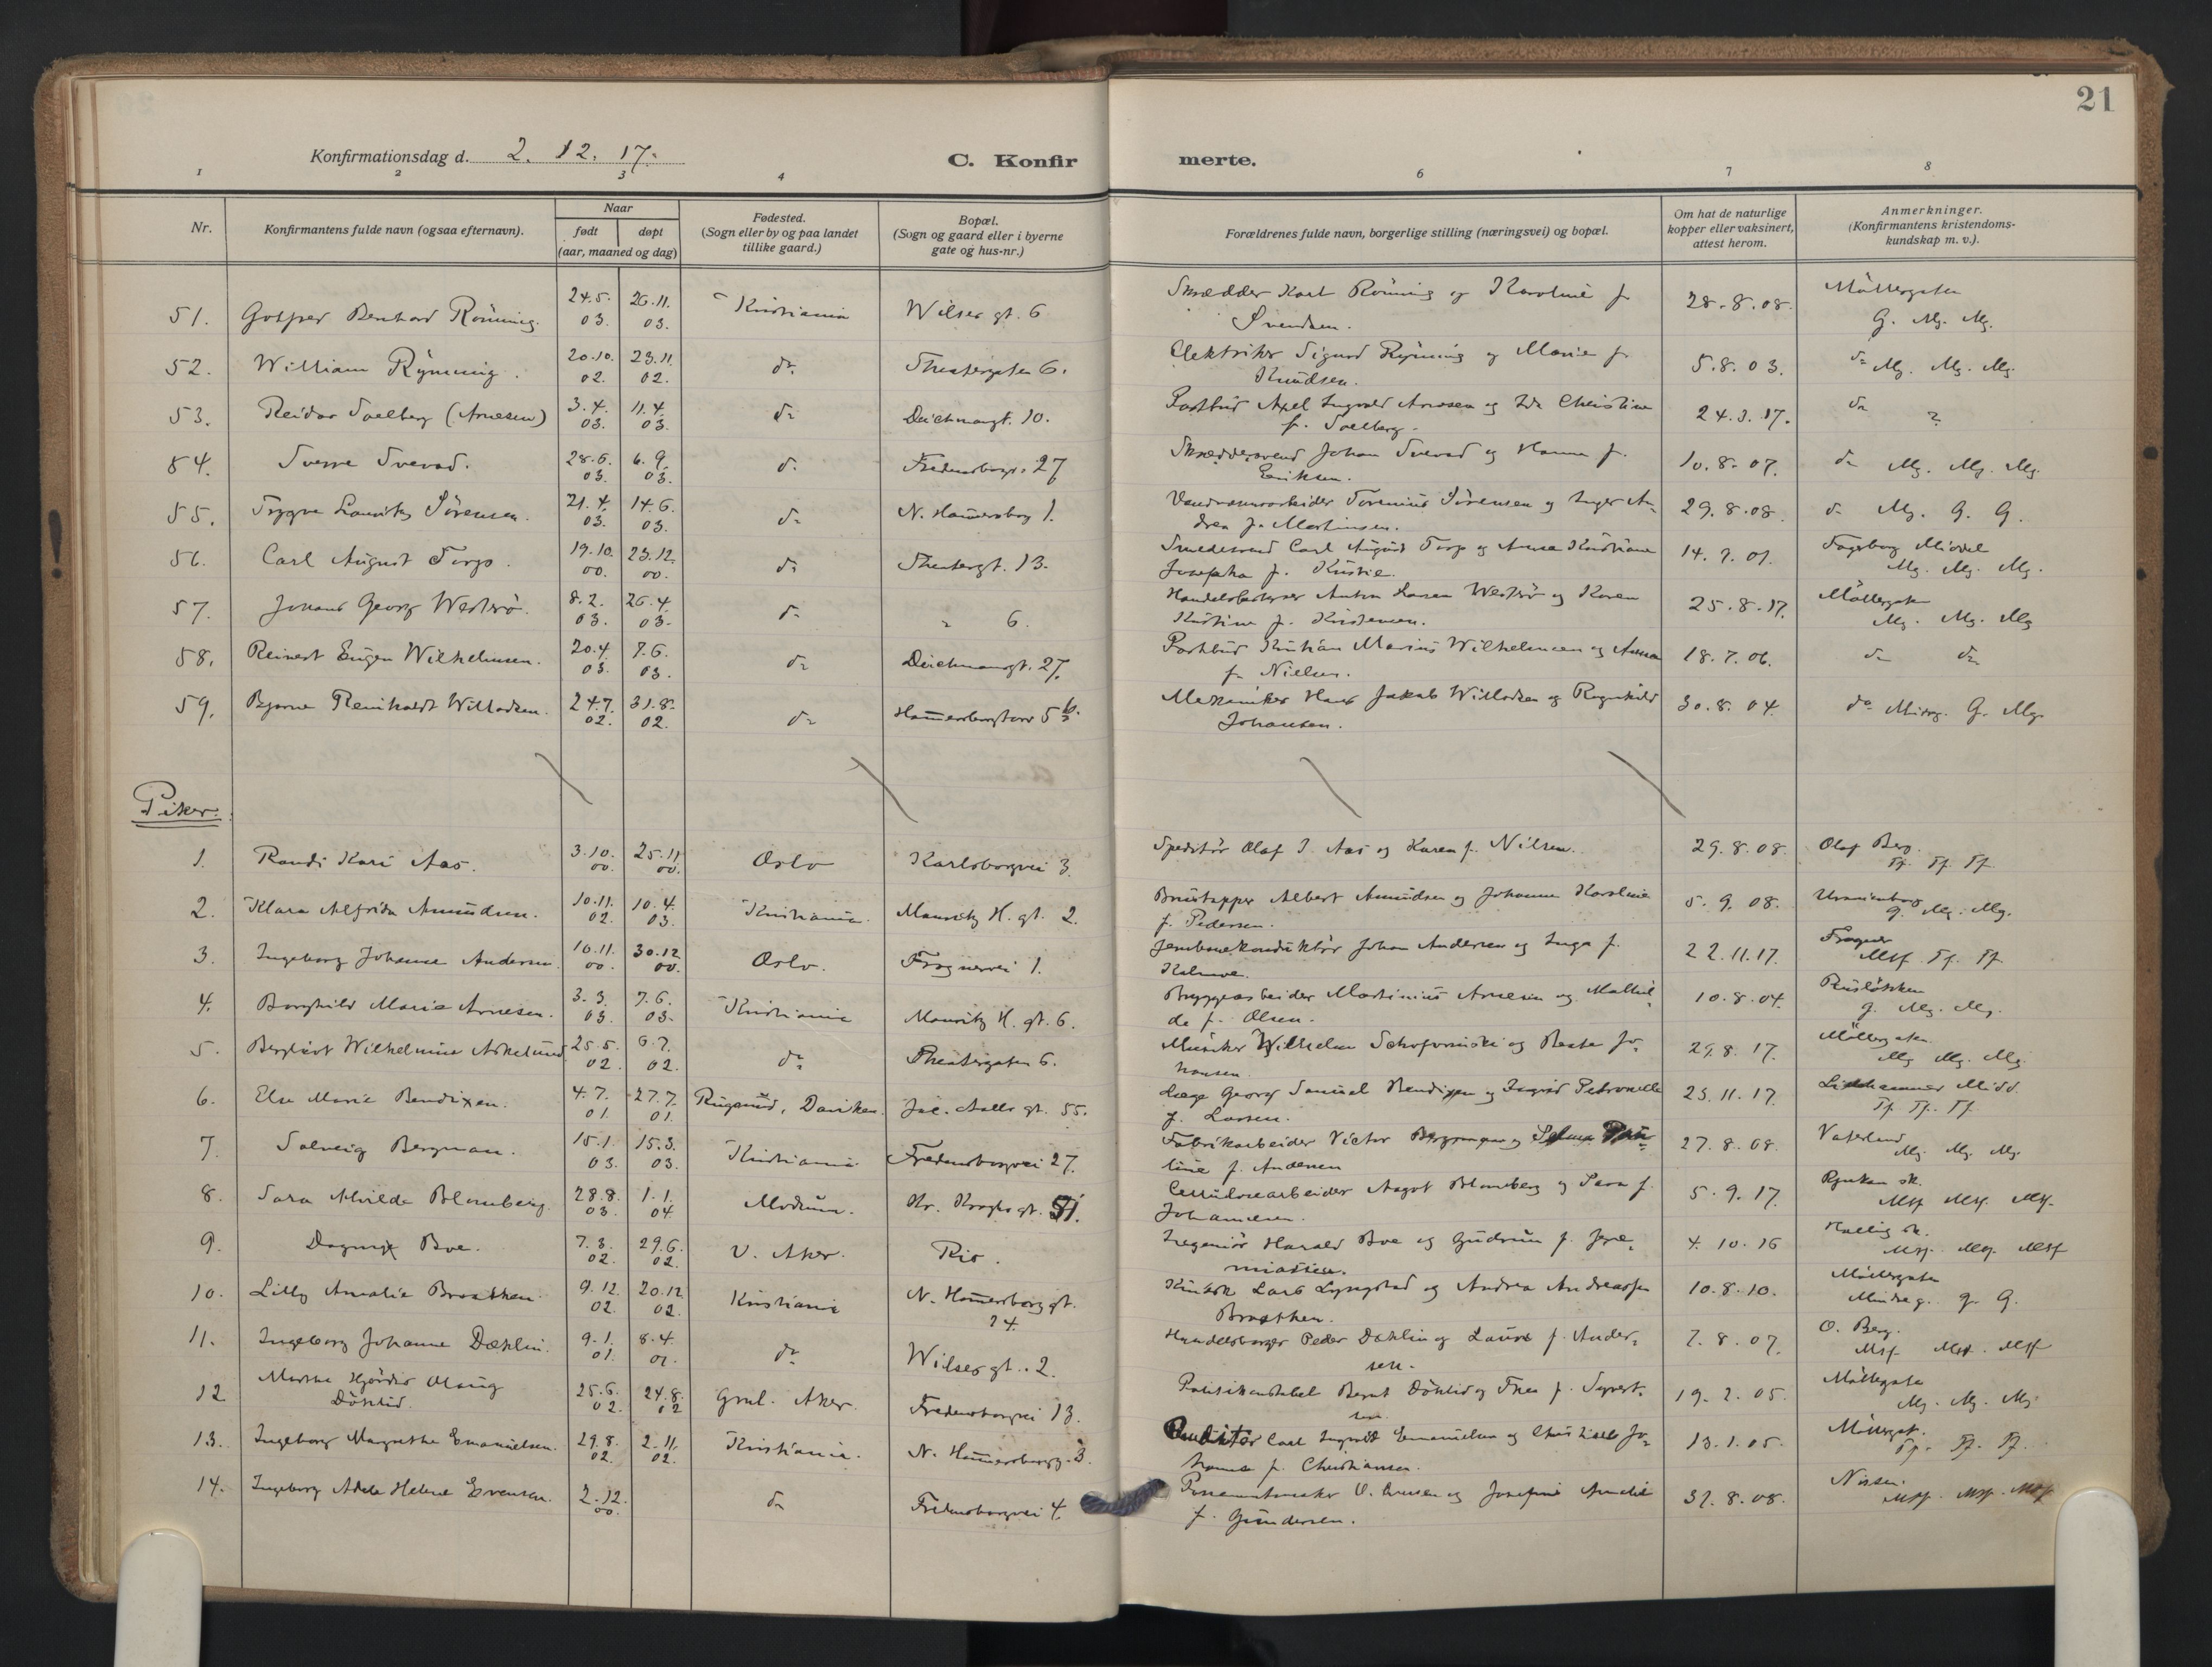 21
Konfirmationsdag d. 2. 12. 17.
C. Konfirmerte.
1 2 3 4 6 7 8
Nr.
Konfirmantens fulde navn (ogsaa efternavn).
Naar
født døpt
(aar, maaned og dag)
Fødested.
(Sogn eller by og paa landet
tillike gaard.)
Bopæl.
(Sogn og gaard eller i byerne
gate og hus-nr.)
Forældrenes fulde navn, borgerlige stilling (næringsvei) og bopæl.
Om hat de naturlige
kopper eller vaksinert,
attest herom.
Anmerkninger.
(Konfirmantens kristendoms-
kundskap m. v.).
51. Bernhard Rönning. 24.5. 03. 26.11. 03. Kristiania Wilses gt. 6 Skrædder Karl Rönning og Karoline f. Svendsen. 28.8.08. Möllergaten G. Mg. Mg.
52. William Rynning. 20.10. 02. 23.11. 02. do Theatergaten 6. Elektriker Sigurd Rynning og Marie f. Knudsen. 5.8.03. do Mg. Mg. Mg.
53. Reidar Solberg (Arnesen) 3.4. 03. 11.4. 03. do Deichmansgt. 10. Postbud Axel Ingvald Arnesen og Ida Christine f. Solberg. 24.3.17. do ?
54. Sverre Svevad. 28.6. 03. 6.9. 03. do Fredensborgv. 27 Skræddersvend Johan Svevad og Hanna f. Eriksen. 10.8.07. do Mg. Mg. Mg.
55. Trygve Lauritz Sörensen. 21.4. 03. 14.6. 03. do N. Hammersborg 1. Sörensen og Inger Andrea f. Martinsen. 29.8.08. do Mg. G. G.
56. Carl August Torp. 19.10. 00. 23.12. 00. do Theatergt. 13. Carl August Torp og Anna Kristiane Josepha f. 14.7.01. Fagerborg Middel Mg. Mg. Mg.
57. Johans Georg Weströ. 8.2. 03. 26.4. 03. do " 6. Handelsbestyrer Anton Larsen Weströ og Karen Kristine f. Kristensen. 25.8.17. Möllergaten Mg. Mg. Mg
58. Reinert Eugen Wilhelmsen. 20.4. 03. 7.6. 03. do Deichmansgt. 27. Postbud Kristian Marius Wilhelmsen og Anna f. Nielsen. 18.7.06. do do
59. Bjarne Reinholdt Willadsen. 24.7. 02. 31.8. 02. do Hammersborgtorv 5 b. Mekaniker Hans Jakob Willadsen og Ragnhild Johansen. 30.8.04. do Mindreg. G. Mg.
Piker.
1. Randi Kari Aas. 3.10. 00. 25.11 00. Oslo Karlsborgvei 3. Speditör Olaf J. Aas og Karen f. Nilsen. 29.8.08. Olaf Berg. Tf. Tf. Tf
2. Klara Alfrida Amundsen. 10.11. 02. 10.4. 03. Kristiania. Mauritz H. gt. 2. Albert Amundsen og Johanne Karoline f. Pedersen. 5.9.08. Uranienborg G. Mg. Mg.
3. Ingeborg Johanne Andersen. 10.11. 00. 30.12. 00. Oslo. Frognervei 1. Jernbanekonduktör Johan Andersen og Inga f. 22.11.17. Frogner Msf Tf. Tf.
4. Borghild Marie Arnesen. 3.3. 03. 7.6. 03. Kristiania Mauritz H. gt. 6. Bryggearbeider Martinius Arnesen og Mathilde f. Olsen. 10.8.04. Ruslökken G. Mg. Mg.
5. Bergliot Wilhelmine Askelund 25.5. 02. 6.7. 02. do Theatergaten 6. Musiker Wilhelm og Beate Johansen. 29.8.17. Möllergaten Mg Mg. Mg.
6. Else Marie Bendixen. 4.7. 01. 27.7. 01. Jac. Aalls gt. 55. Læge Georg Samuel Bendixen og Ingrid Petronelle f. Larsen. 23.11.17. Lillehammer Midd. Tf. Tf. Tf
7. Solveig Bergman. 15.1. 03. 15.3. 03. Kristiania Fredensborgvei 27. Fabrikarbeider Victor Bergman og Selma Pauline f. Andersen 27.8.08. Vaterland Mg. Mg. Mg.
8. Sara Alvilde Blomberg. 28.8. 03. 1.1. 04. Modum. Kr. Kroghs gt. 51. Cellulosearbeider August Blomberg og Sara f. Johannesen. 5.9.17. Rjukan sk. Msf Msf. Msf.
9. Dagny Boe. 7.3. 02. 29.6. 02. V. Aker. Rio. Ingeniör Harald Boe og Gudrun f. Jeremiassen. 4.10.16 Msf. Mg. Msf
10. Lilly Amalie Braathen. 9.12. 02. 20.12. 02. Kristiania N. Hammersborg gt. 24. Lars Lyngstad og Andrea Andreassen Braathen. 10.8.10. Möllergaten Mindre g. g. G.
11. Ingeborg Johanne Dæhlin. 9.1. 01. 8.4. 01. do Wilses gt. 2. Handelsborger Peder Dæhlin og Laura f. Andersen. 7.8.07. O. Berg. Msf Msf. Msf
12 Marthe Hjördis Döhlid. 25.6. 02. 24.8. 02 Gml. Aker. Fredensborgvei 13. Politikonstabel Bernt Döhlid og Thea f. Syvertsen. 19.2.05. Möllergaten Mg. Mg. Mg
13. Ingeborg Margrethe Emanuelsen. 29.8. 02. 2.11. 02. Kristiania. N. Hammersborgg. 3. Carl Ingvald Emanuelsen og Johanne f. Christiansen. 13.1.05. Möllergat. Tf. Tf. Tf
14. Ingeborg Adele Helene Evensen. 2.12. 00. do Fredensborgvei 4. og Josefine Amalie f. Gundersen. 31.8.08. Nissen. Msf. Msf. Msf